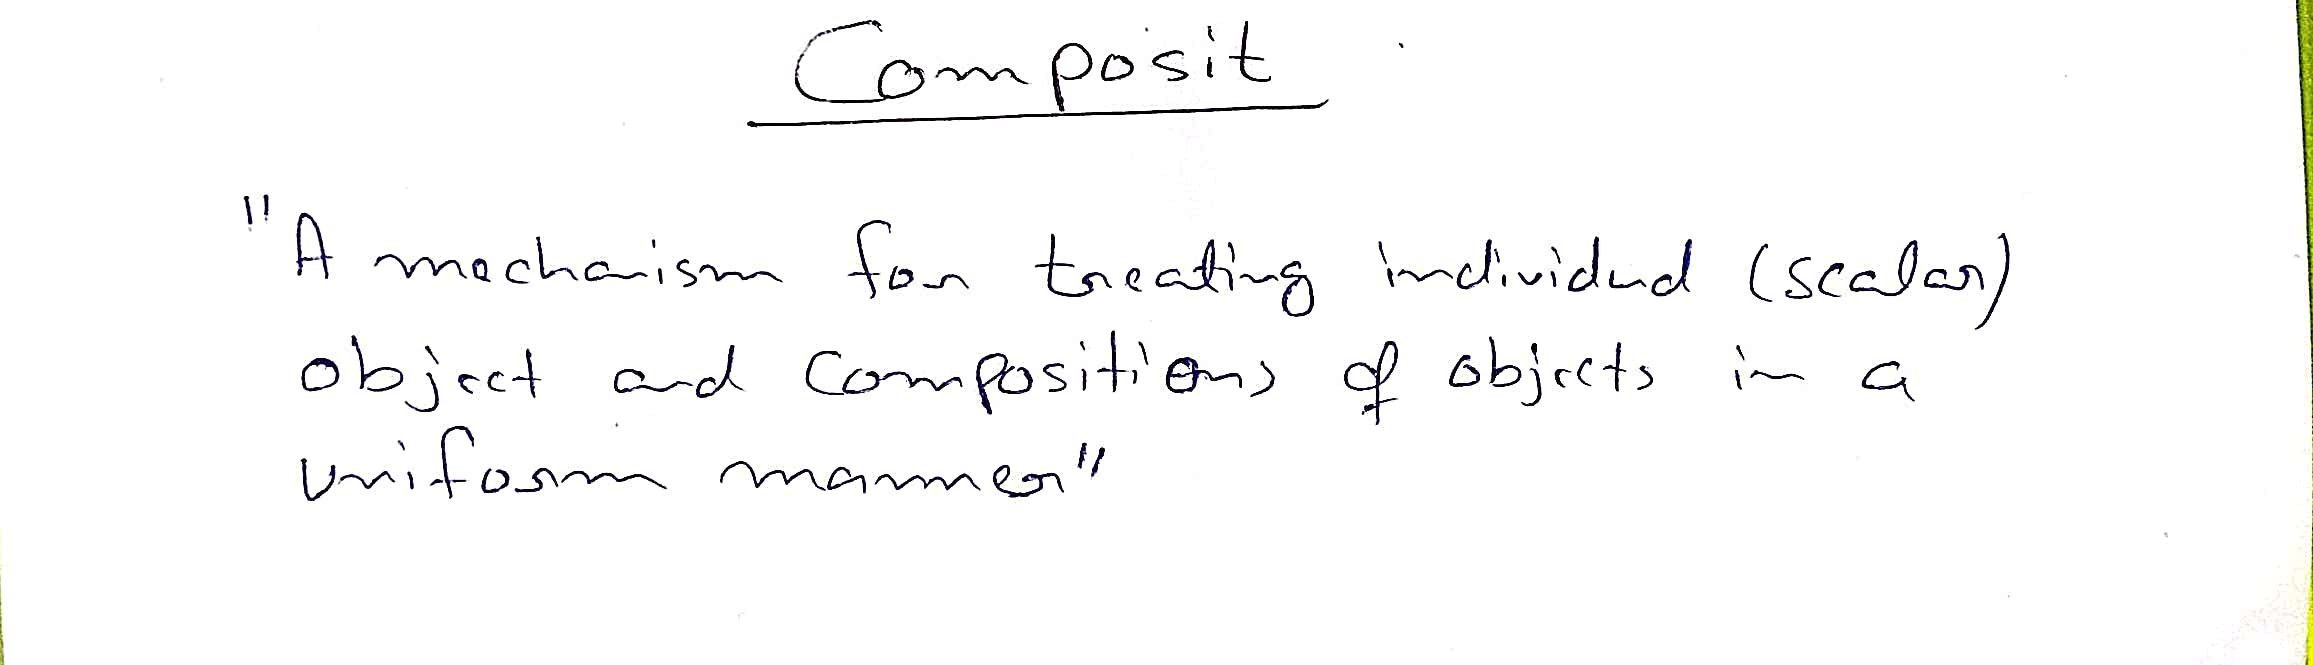 Composit
"A mechanism for treating individual (scalar)
object and compositions of objects in a
uniform manner"